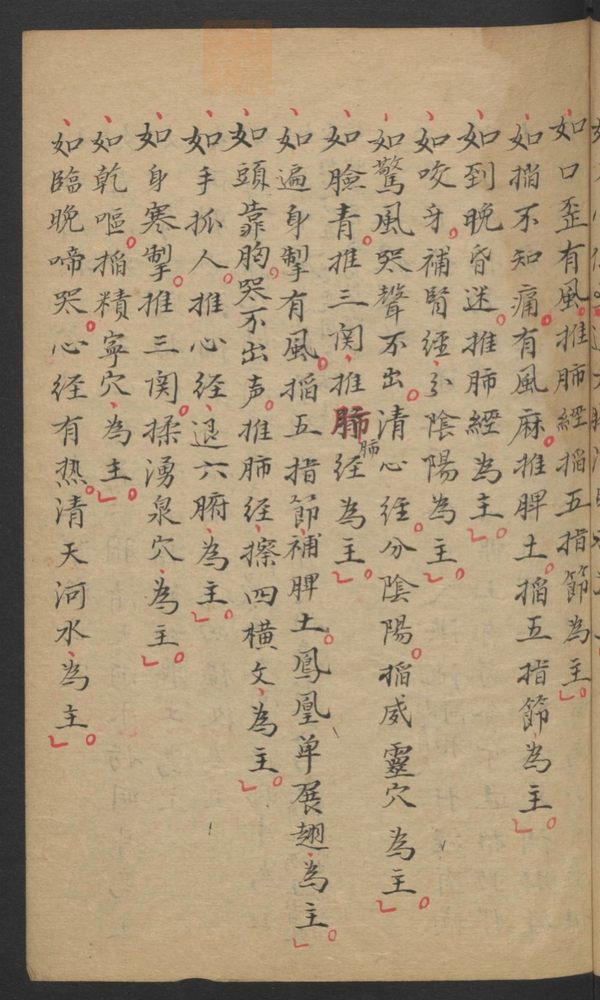 如口歪有風。推肺經掐五指節為主。
如掐不知痛。有風麻。推脾土。掐五指節為主。
如到晚昏迷。推肺經為主。
如咬牙。補腎經、分陰陽為主。
如驚風哭聲不出。清心経。分陰陽。掐威靈穴為主。
如臉青。推三関、推肺経為主。
肺
如遍身掣有風。掐五指節、補脾土。鳳凰单展翅、為主。
如頭靠胸。哭不出声。推肺经、擦四橫文、為主。
如手抓人。推心经、退六腑、為主。
如身寒掣。推三関。揉湧泉穴、為主。
如乾嘔。掐精寧穴、為主。
如臨晚啼哭。心经有热。清天河水、為主。